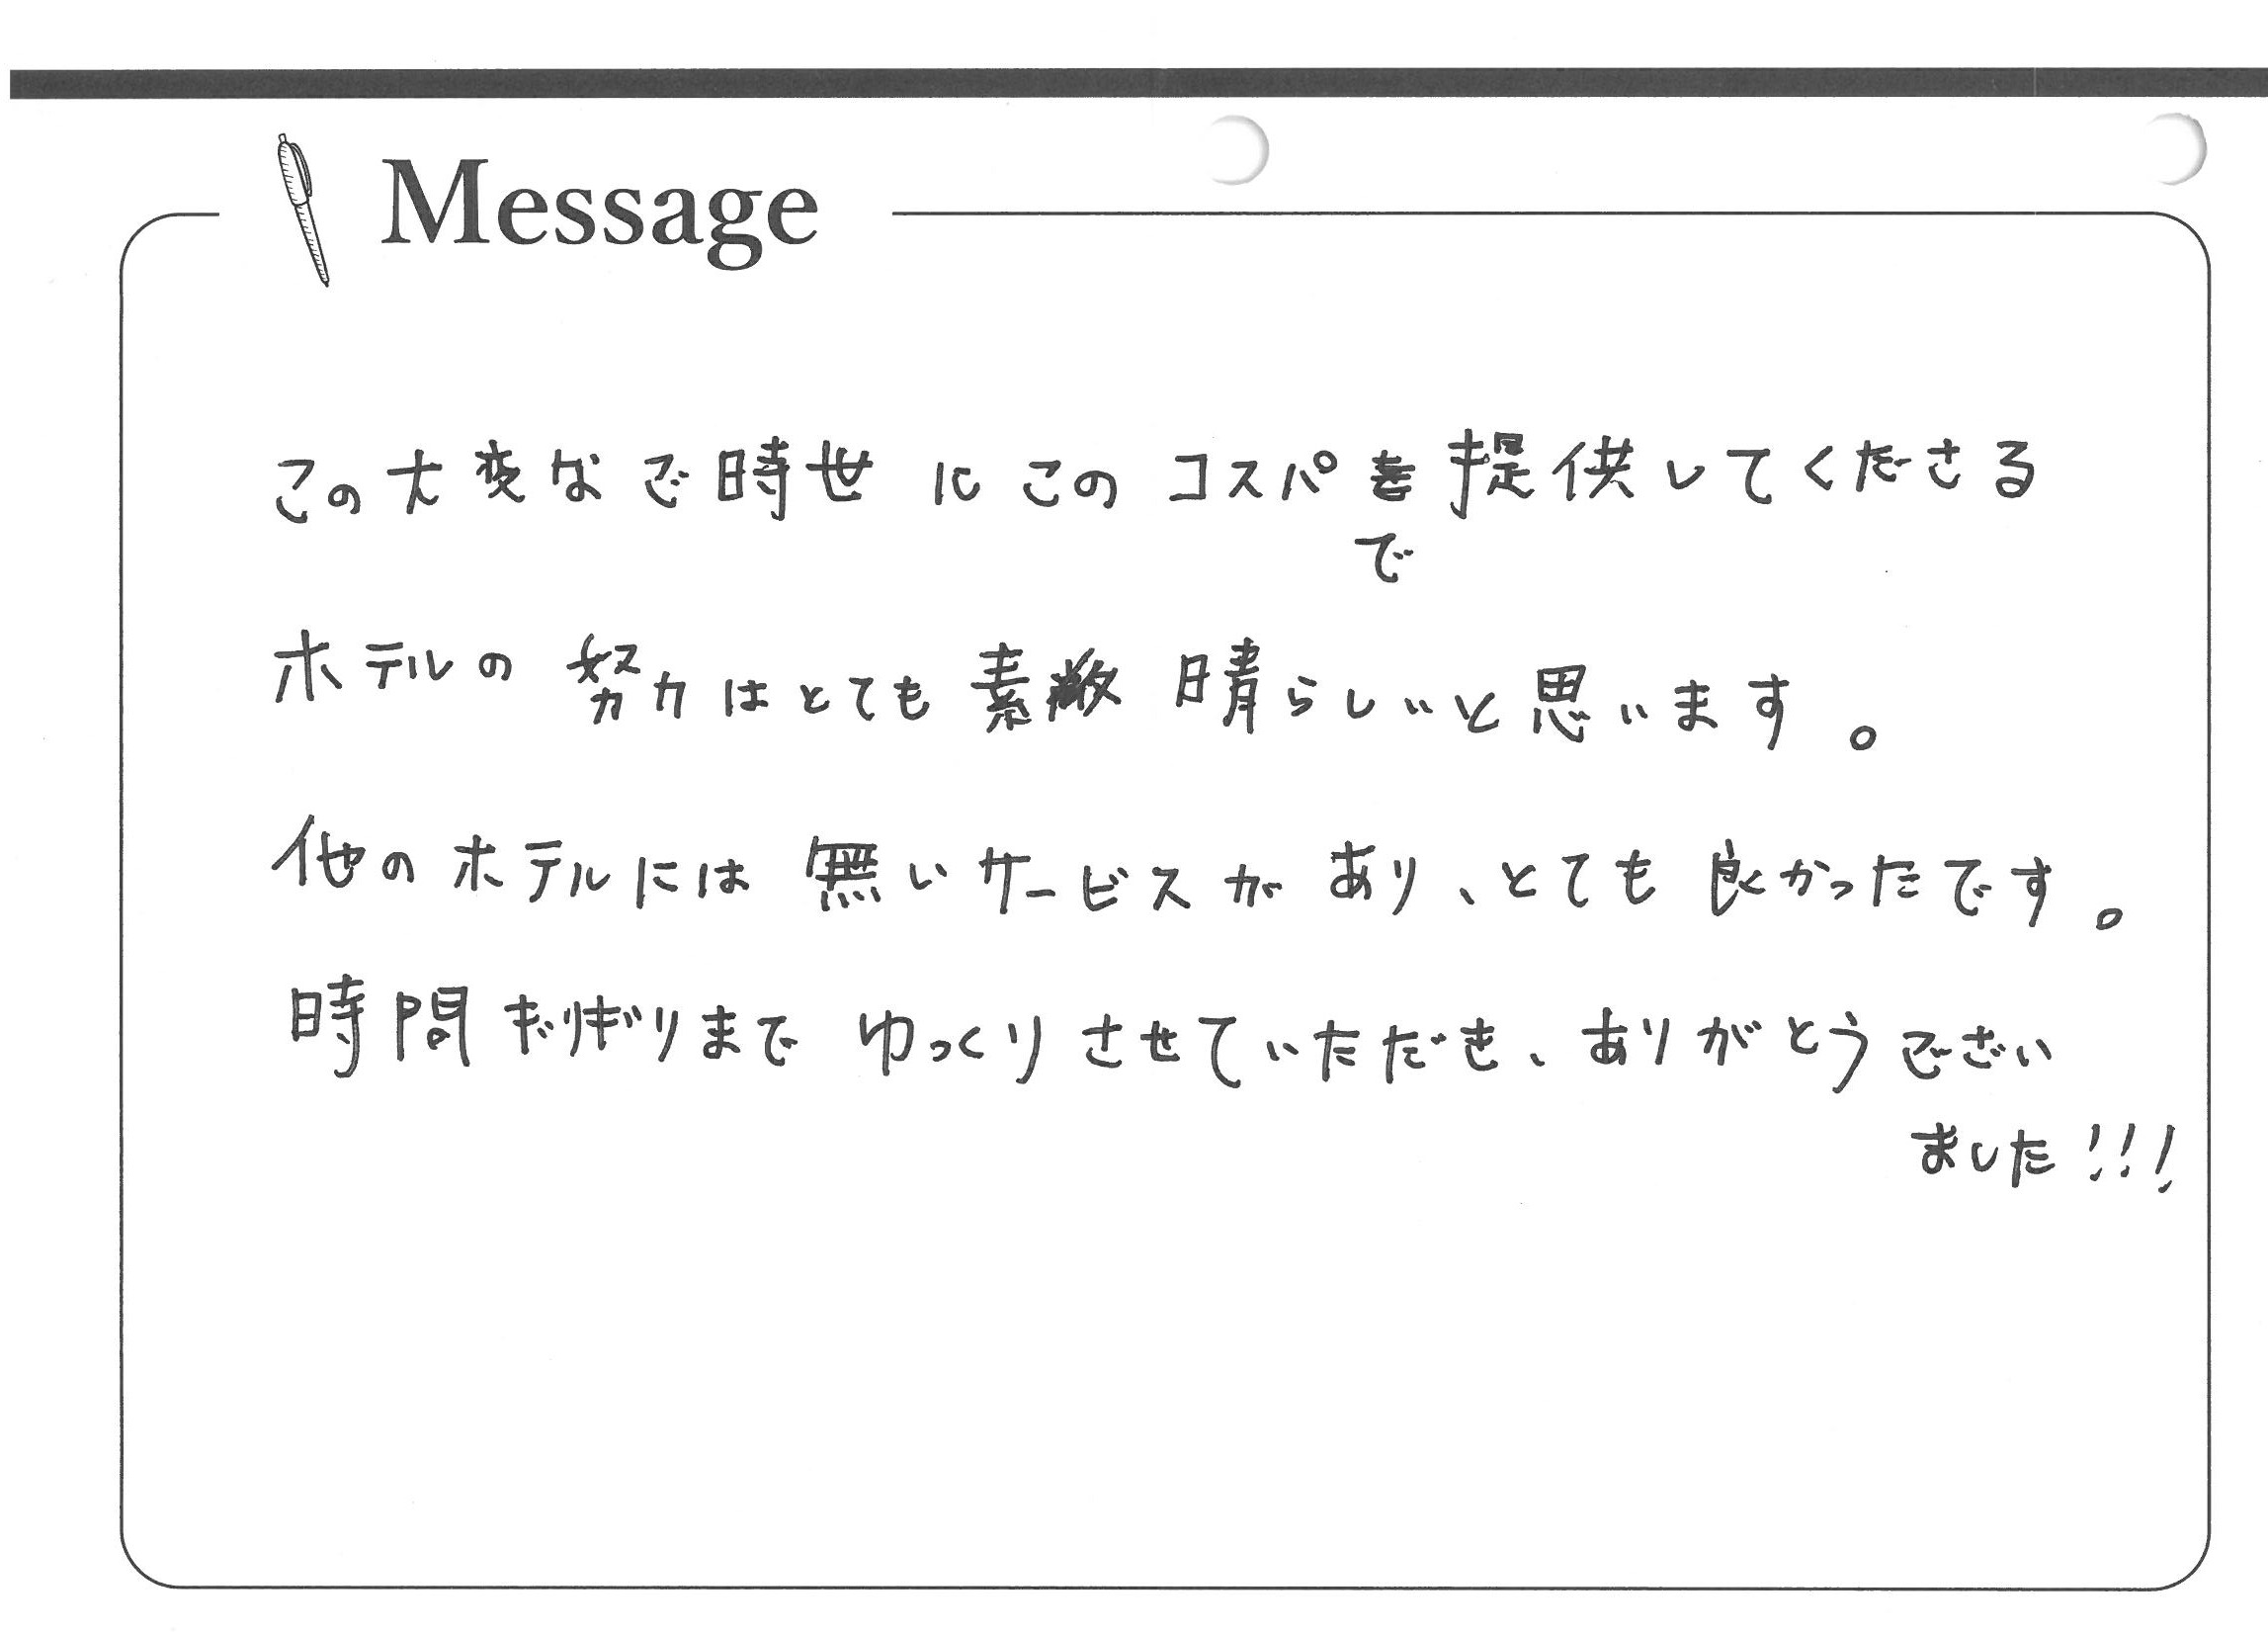 Message
この大変なご時世にこのコスパで提供してくださる
ホテルの努力はとても素晴らしいと思います。
他のホテルには無いサービスがあり、とても良かったです。
時間ギリギリまでゆっくりさせていただき、ありがとうござい
ました!!!